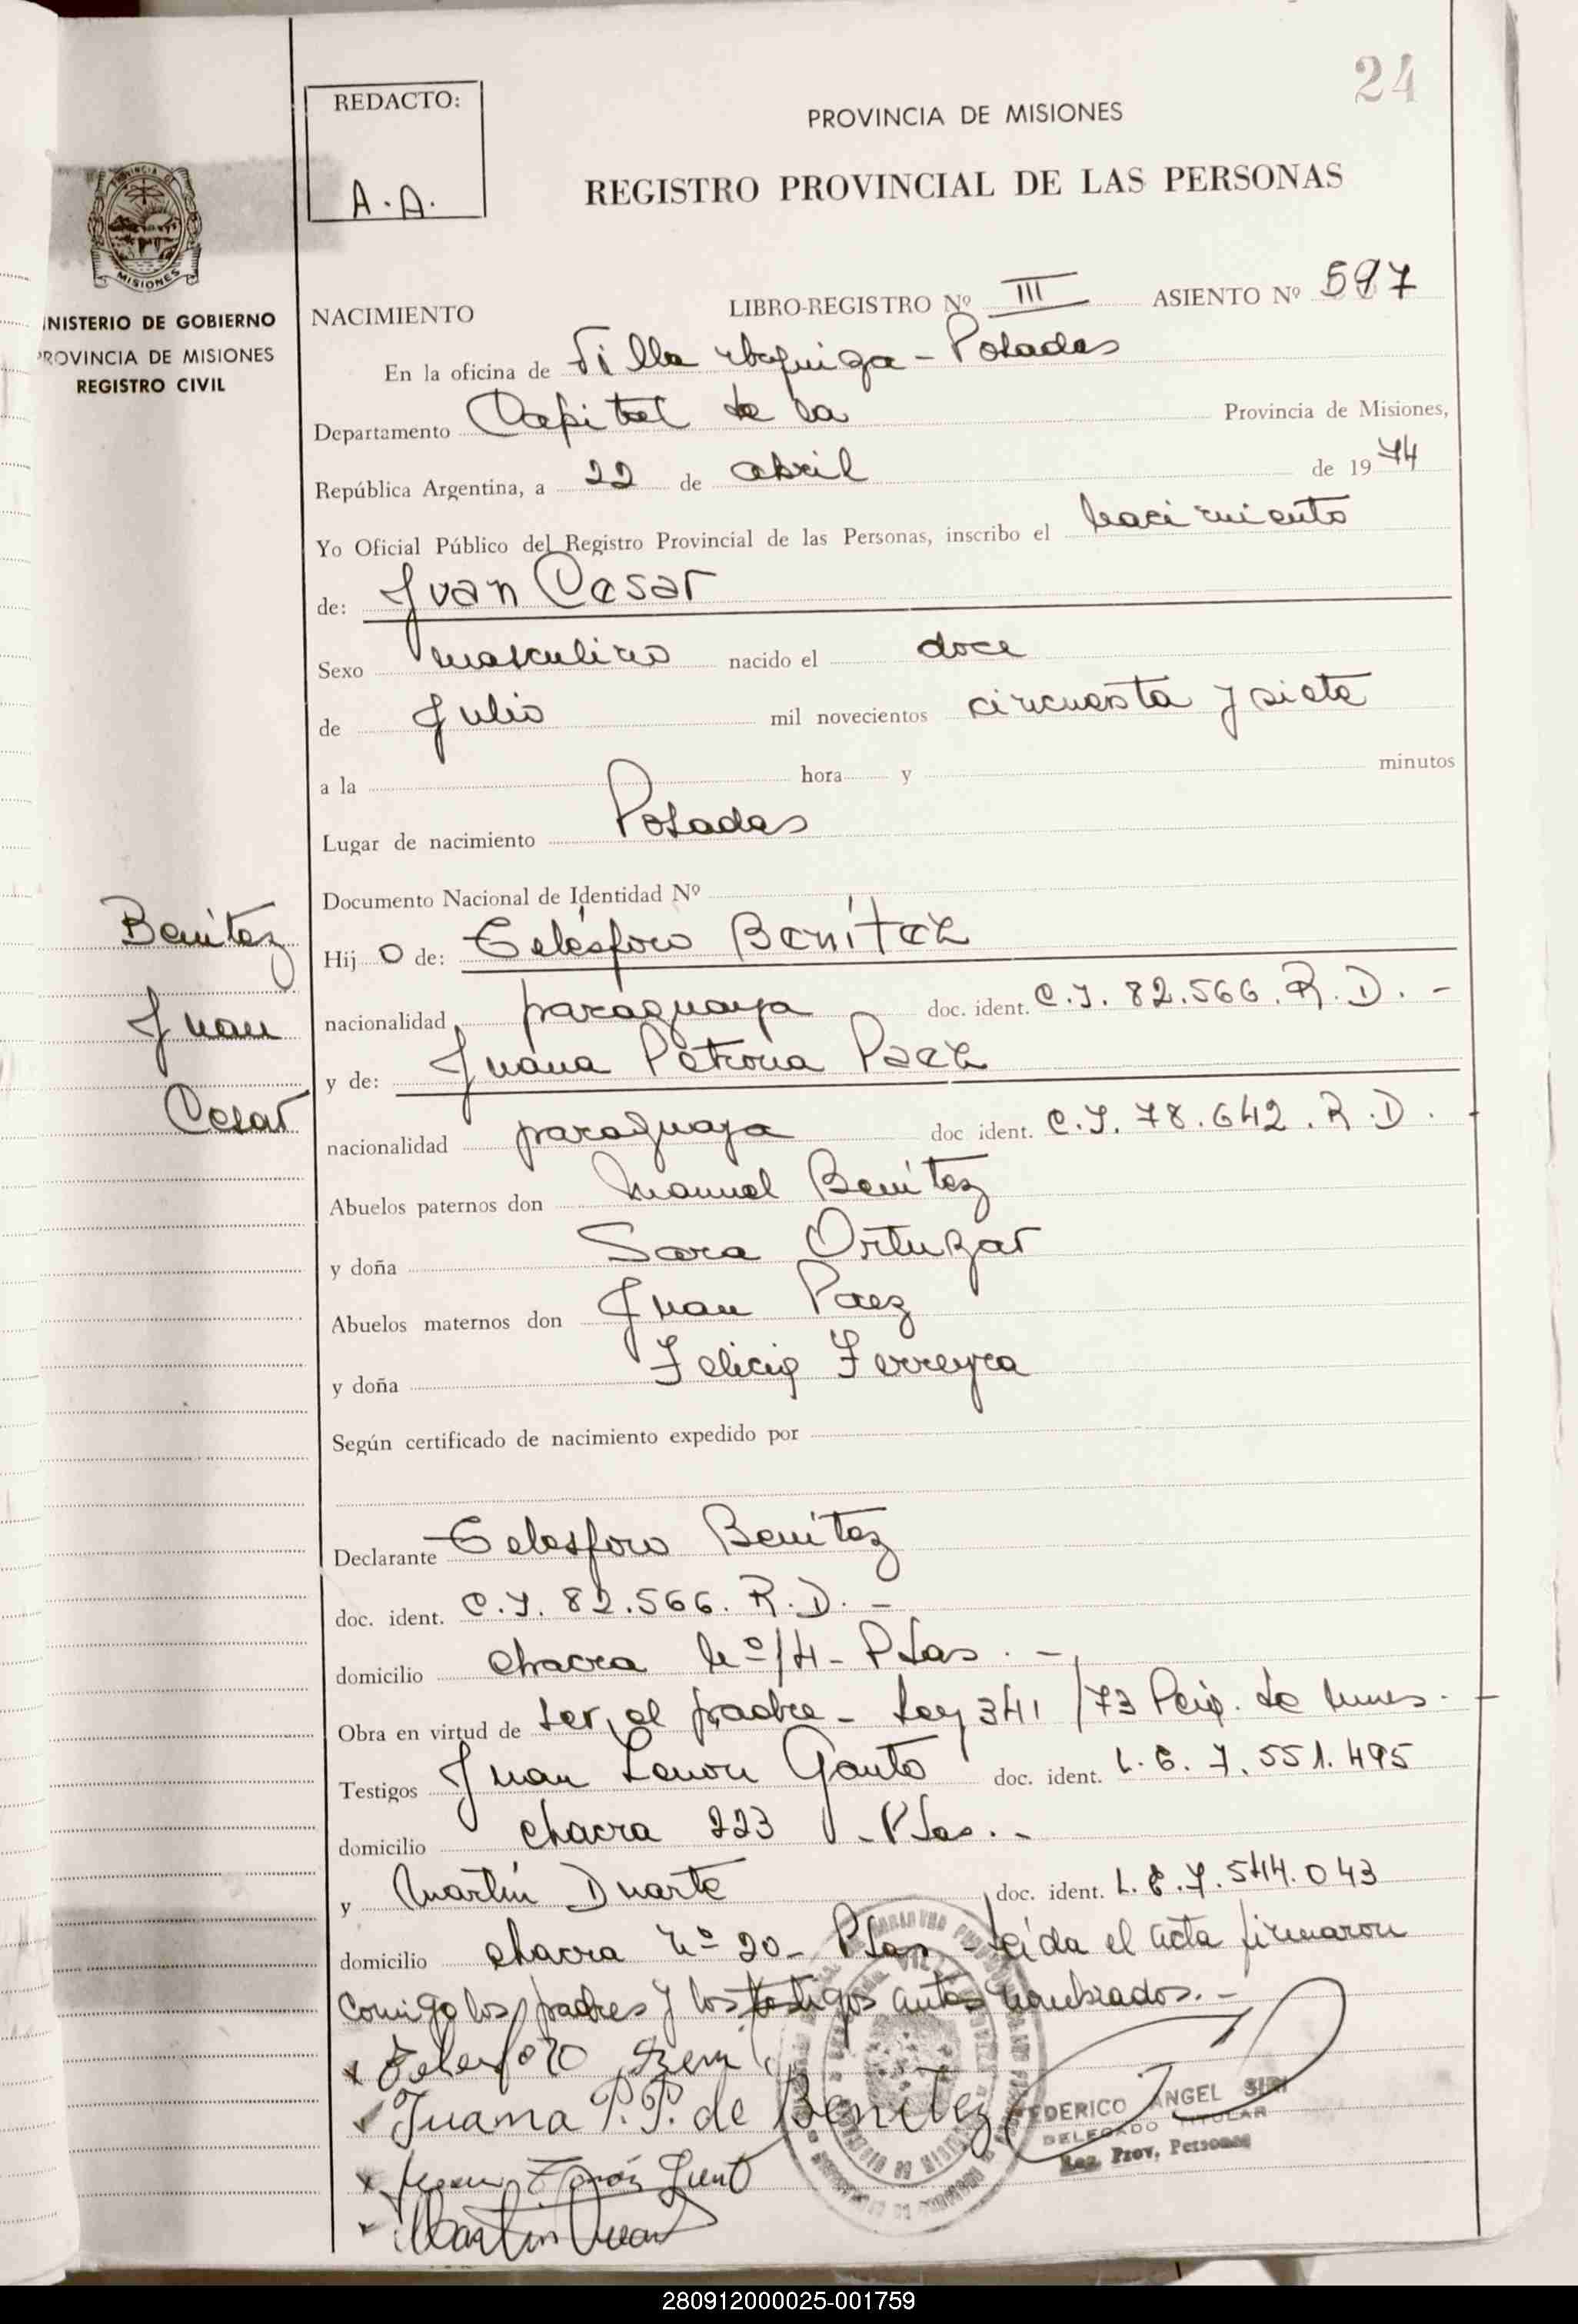 24
REDACTO:
A.A.
PROVINCIA DE MISIONES
REGISTRO PROVINCIAL DE LAS PERSONAS
MISIONES
INISTERIO DE GOBIERNO
PROVINCIA DE MISIONES
REGISTRO CIVIL
NACIMIENTO LIBRO-REGISTRO Nº III ASIENTO Nº 597
En la oficina de Villa - Posadas
Departamento Capital de la Provincia de Misiones,
República Argentina, a 22 de abril de 1974
Yo Oficial Público del Registro Provincial de las Personas, inscribo el nacimiento
de: Juan Cesar
Sexo masculino nacido el doce
de Julio mil novecientos cincuenta y siete
a la hora y minutos
Lugar de nacimiento Posadas
Documento Nacional de Identidad Nº
Benitez
Juan
Cesar
Hij o de: Telésforo Benítez
nacionalidad paraguaya doc. ident. C.I. 82.566. R.D. -
y de: Juana Petrona Paez
nacionalidad paraguaya doc ident. C.I. 78.642. R.D. -
Abuelos paternos don Manuel Benitez
y doña Sara Ortuzar
Abuelos maternos don Juan Paez
y doña Felicia Ferreyra
Según certificado de nacimiento expedido por
Declarante Telesforo Benitez
doc. ident. C.I. 82.566. R.D. -
domicilio chacra nº 14 - Psas. -
Obra en virtud de ser el padre - Ley 341/73 -
Testigos Juan Gauto doc. ident. L.E. 7.551.495
domicilio chacra 223 - Psas. -
y Martín Duarte doc. ident. L.E. 7.544.043
domicilio chacra nº 20 - Psas - Leida el acta firmaron
comigo los padres y los testigos antes nombrados. -
x Telesforo Beni
Juana P. P. de Benitez
x
Martin
FEDERICO ANGEL SIRI
DELEGADO TITULAR
Reg. Prov. Personas
280912000025-001759